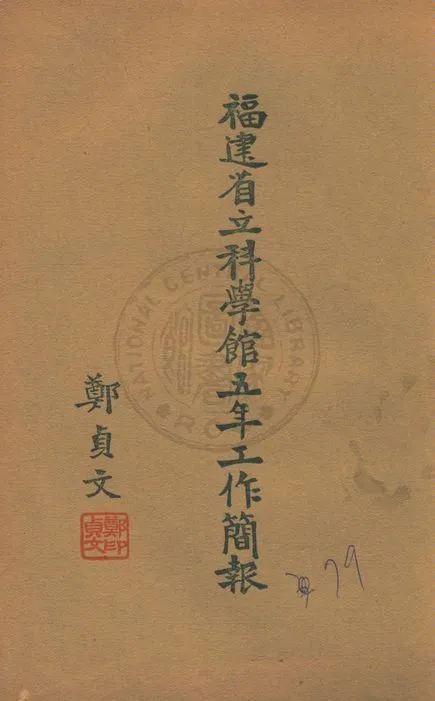 福建省立科學館五年工作簡報
鄭貞文
鄭印
貞文
NATIONAL CENTRAL LIBRARY
79